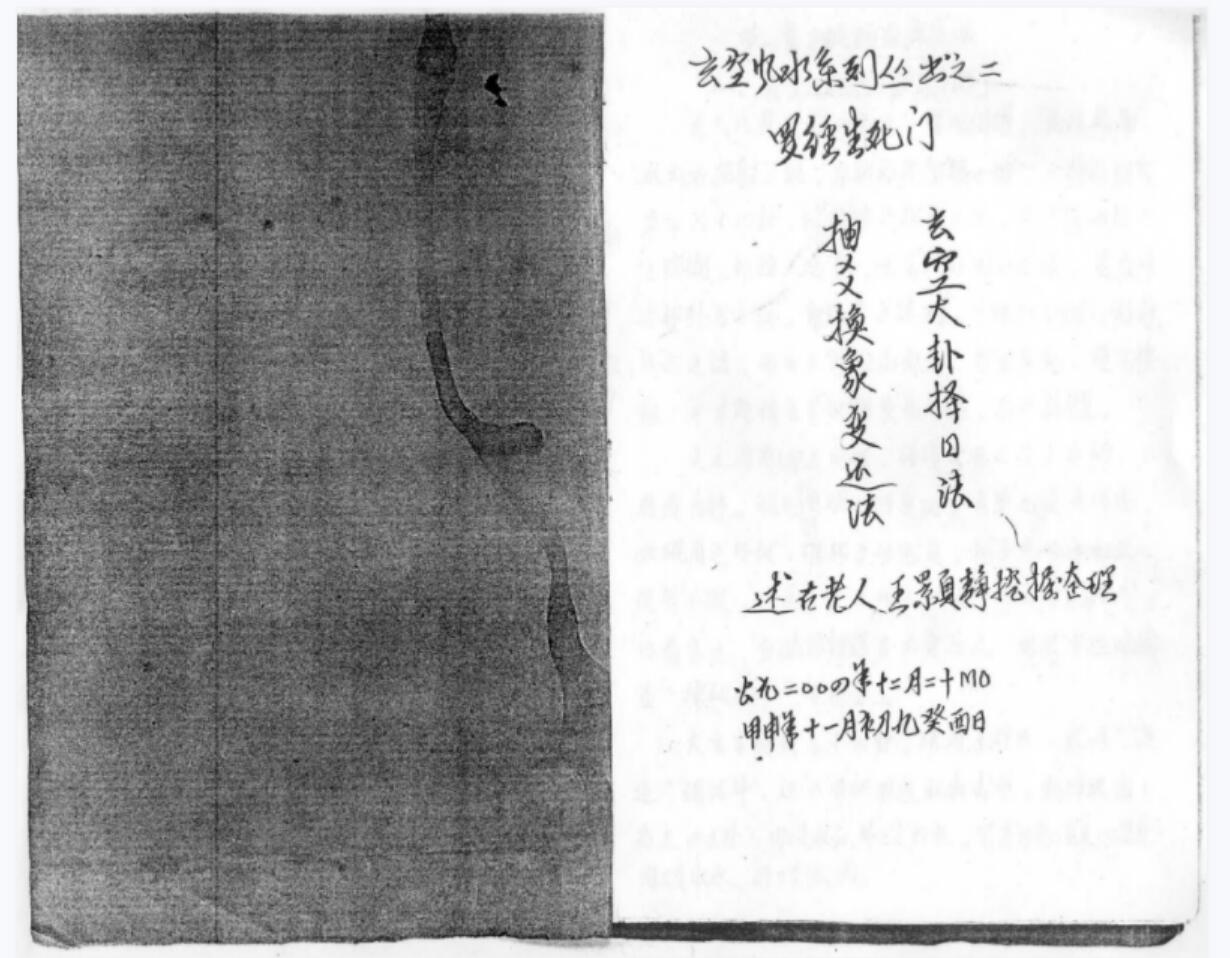 玄空风水系列丛书之二
罗经生死门
玄空大卦择日法
抽爻换象变运法
述古老人王挖掘整理
公元二00四年十二月二十日
甲申年十一月初九癸酉日